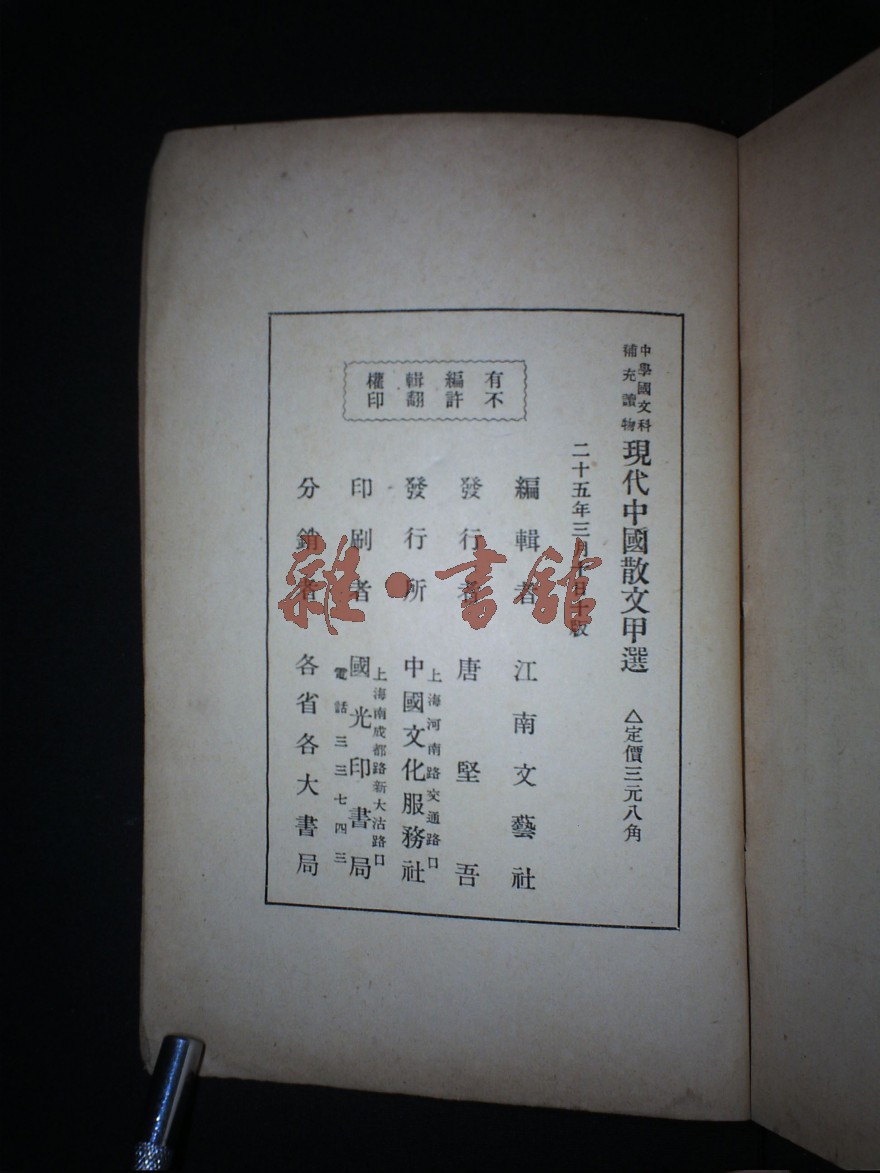 中學國文科
補充讀物
現代中國散文甲選
△定價三元八角
二十五年三月十日十版
有不
編許
輯翻
權印
編輯者 江南文藝社
發行者 唐堅吾
上海河南路交通路口
發行所 中國文化服務社
上海南成都路新大沽路口
印刷者 國光印書局
電話三三七四三
分銷者 各省各大書局
雜·書館